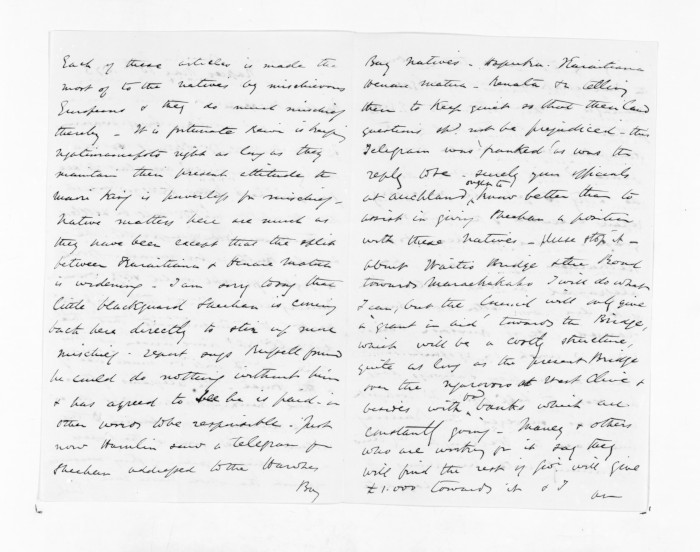 Each of these articles is made the
most of to the natives by mischievous
Europeans & they do much mischief
thereby - It is fortunate Kawi is keeping
Ngatimaniapoto right as long as they
maintain their present attitude the
Maori King is powerless for mischief -
Native matters here are much as
they have been except that the split
between Karaitiana & Henare Matua
is widening. I am sorry to say that
little blackguard Sheehan is coming
back here directly to stir up more
mischief - report says Russell found
he could do nothing without him
& has agreed to see he is paid - in
other words to be responsible. Just
now Hamlin saw a telegram from
Sheehan addressed to the Hawkes
Bay
Bay Natives - Karaitiana
Henare Matua - Renata &c telling
them to keep quiet so that their land
questions shd. not be prejudiced - this
Telegram was 'franked' as was the
reply to be - surely your officials
at Auckland ought to know better than to
assist in giving Sheehan a position
with these Natives - please stop it -
About Waitio Bridge & the Road
towards Maraekakaho I will do what
I can, but the Council will only give
a 'grant in aid' towards the Bridge,
which will be a costly structure,
quite as long as the present Bridge
over the Ngaruroro at West Clive &
besides with bad banks which are
constantly going - Maney & others
who are working for it say they
will find the rest if Govt will give
£1.000 towards it & I
am